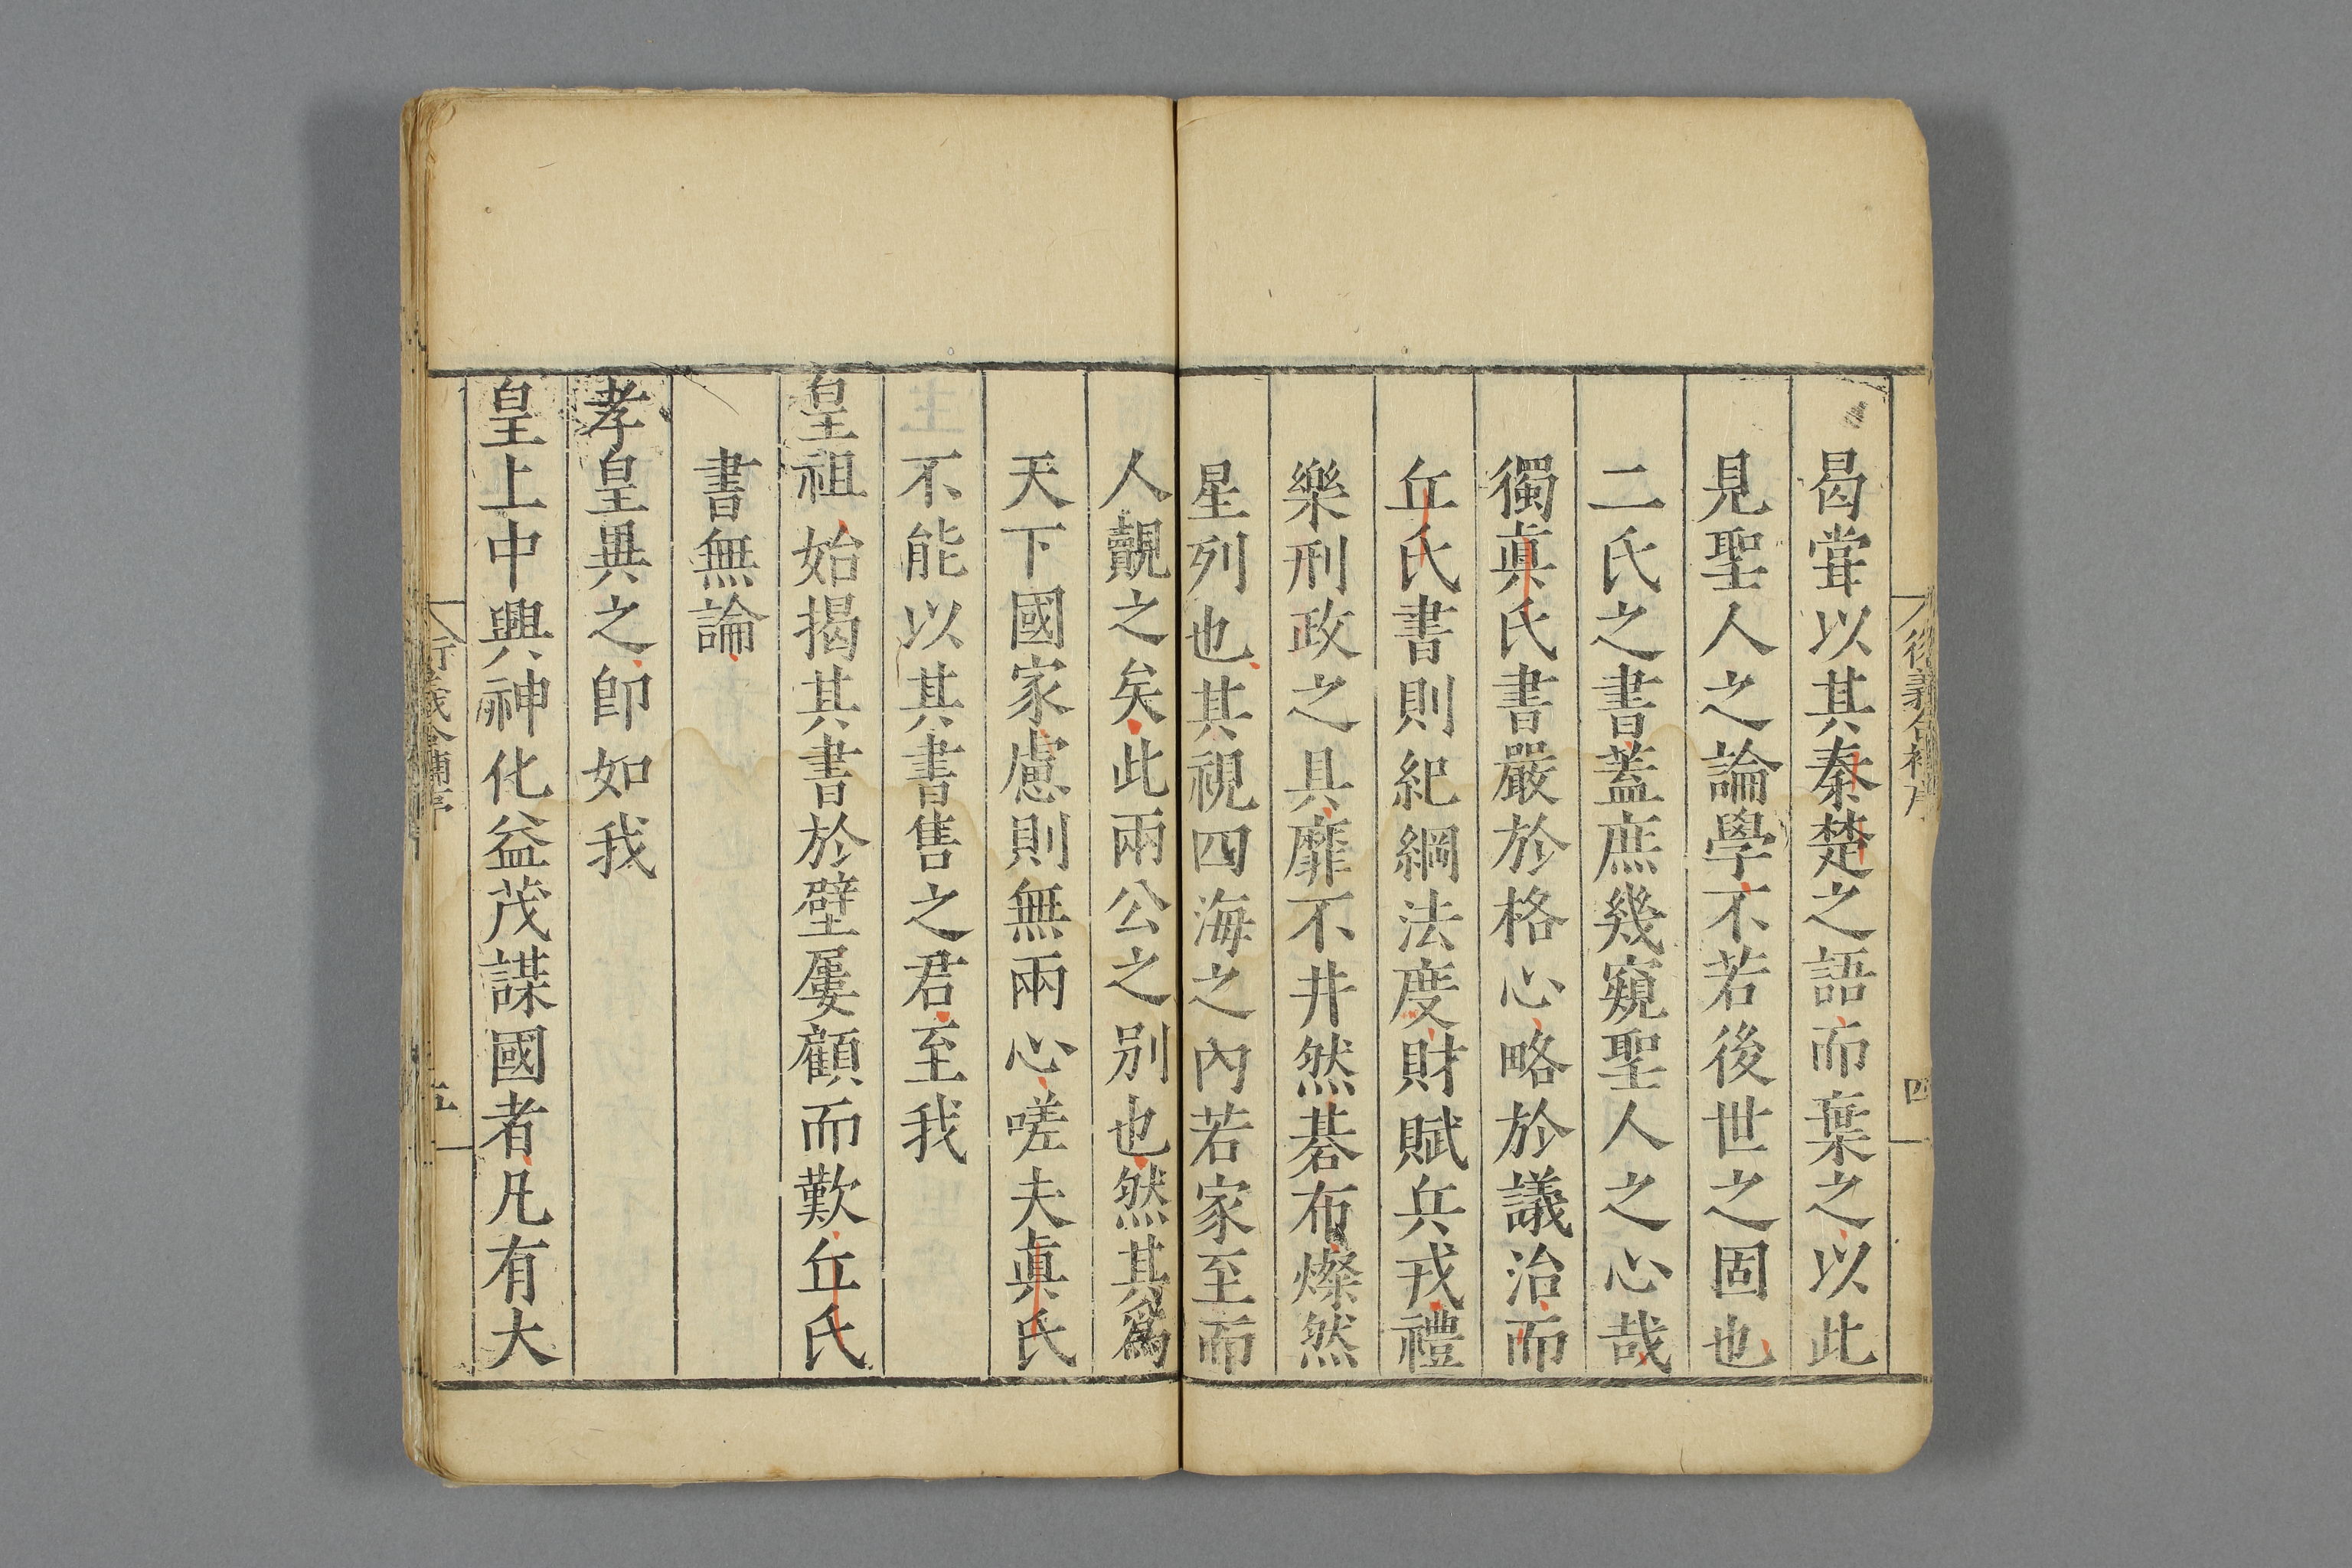 曷甞以其秦楚之語而棄之以此
見聖人之論學不若後世之固也
二氏之書蓋庶幾窺聖人之心哉
獨眞氏書嚴於格心略於議治而
丘氏書則紀綱法度財賦兵戎禮
樂刑政之具靡不井然碁布燦然
星列也其視四海之內若家至而
四
人覿之矣此兩公之別也然其爲
天下國家慮則無兩心嗟夫眞氏
不能以其書售之君至我
皇祖始揭其書於壁屢顧而歎丘氏
書無論
孝皇異之卽如我
皇上中興神化益茂謀國者凡有大
五